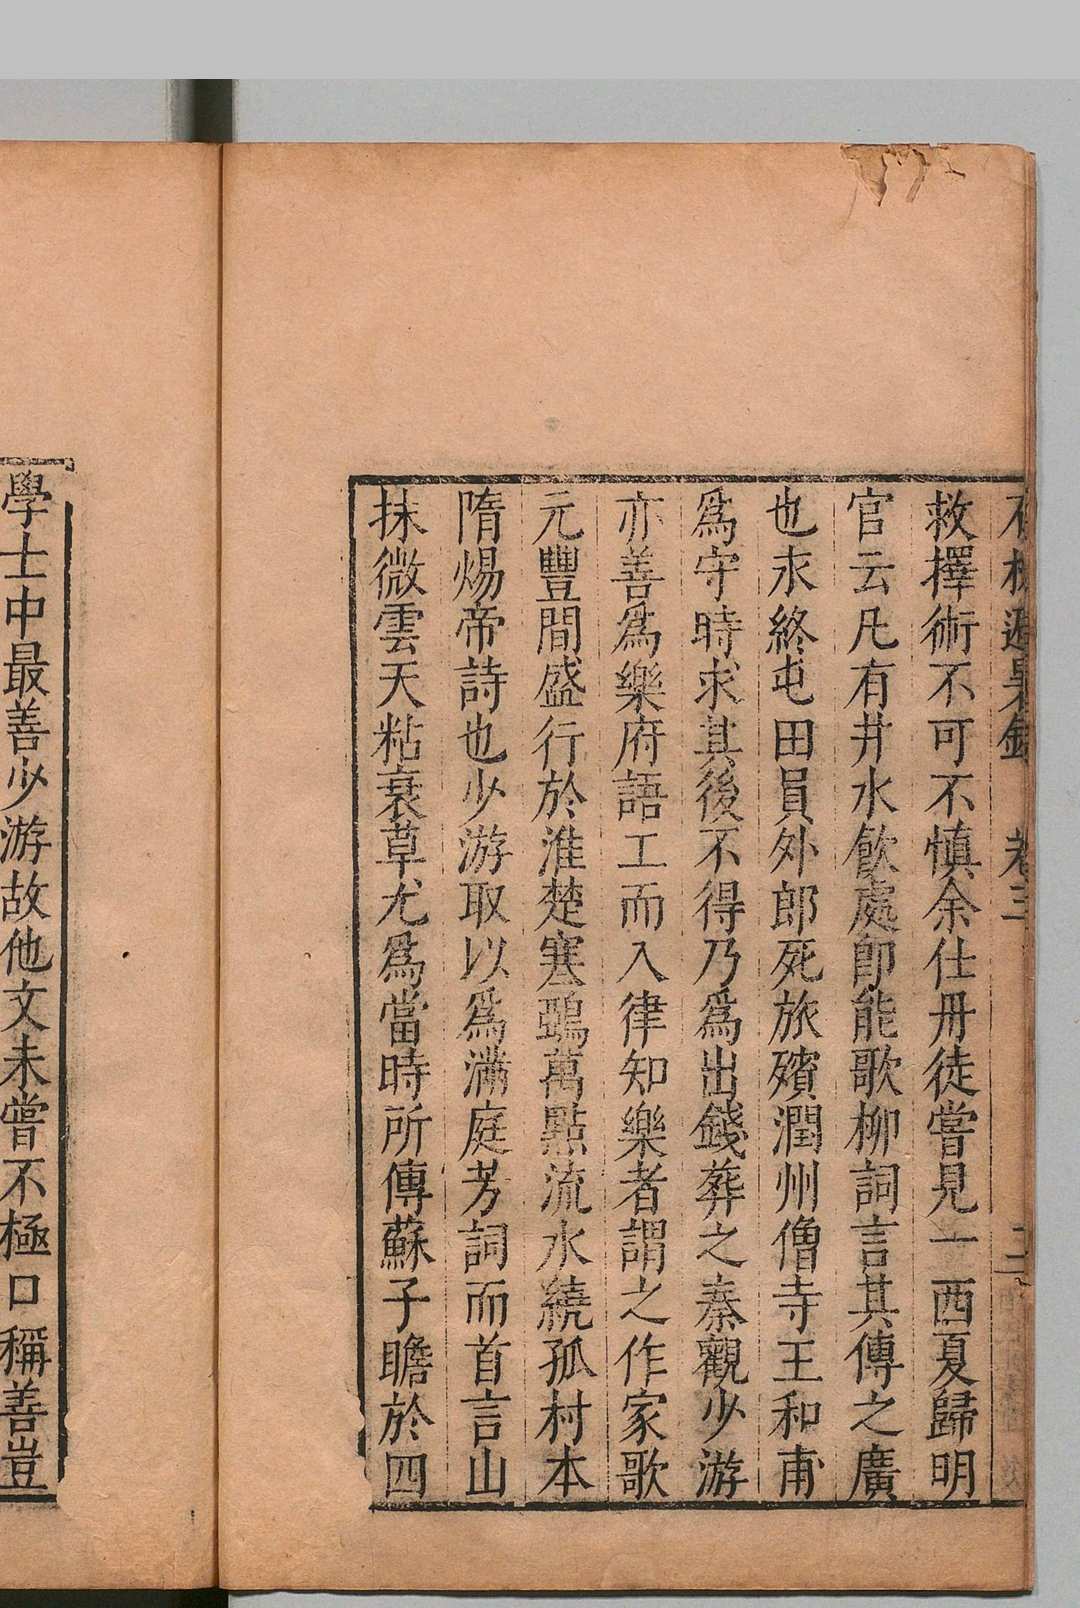 石林避暑錄 卷三 二
救擇術不可不慎余仕丹徒嘗見一西夏歸明
官云凡有井水飲處即能歌柳詞言其傳之廣
也永終屯田員外郎死旅殯潤州僧寺王和甫
爲守時求其後不得乃爲出錢葬之秦觀少游
亦善爲樂府語工而入律知樂者謂之作家歌
元豐間盛行於淮楚寒鵶萬點流水繞孤村本
隋煬帝詩也少游取以爲滿庭芳詞而首言山
抹微雲天粘衰草尤爲當時所傳蘇子瞻於四
學士中最善少游故他文未嘗不極口稱善豈